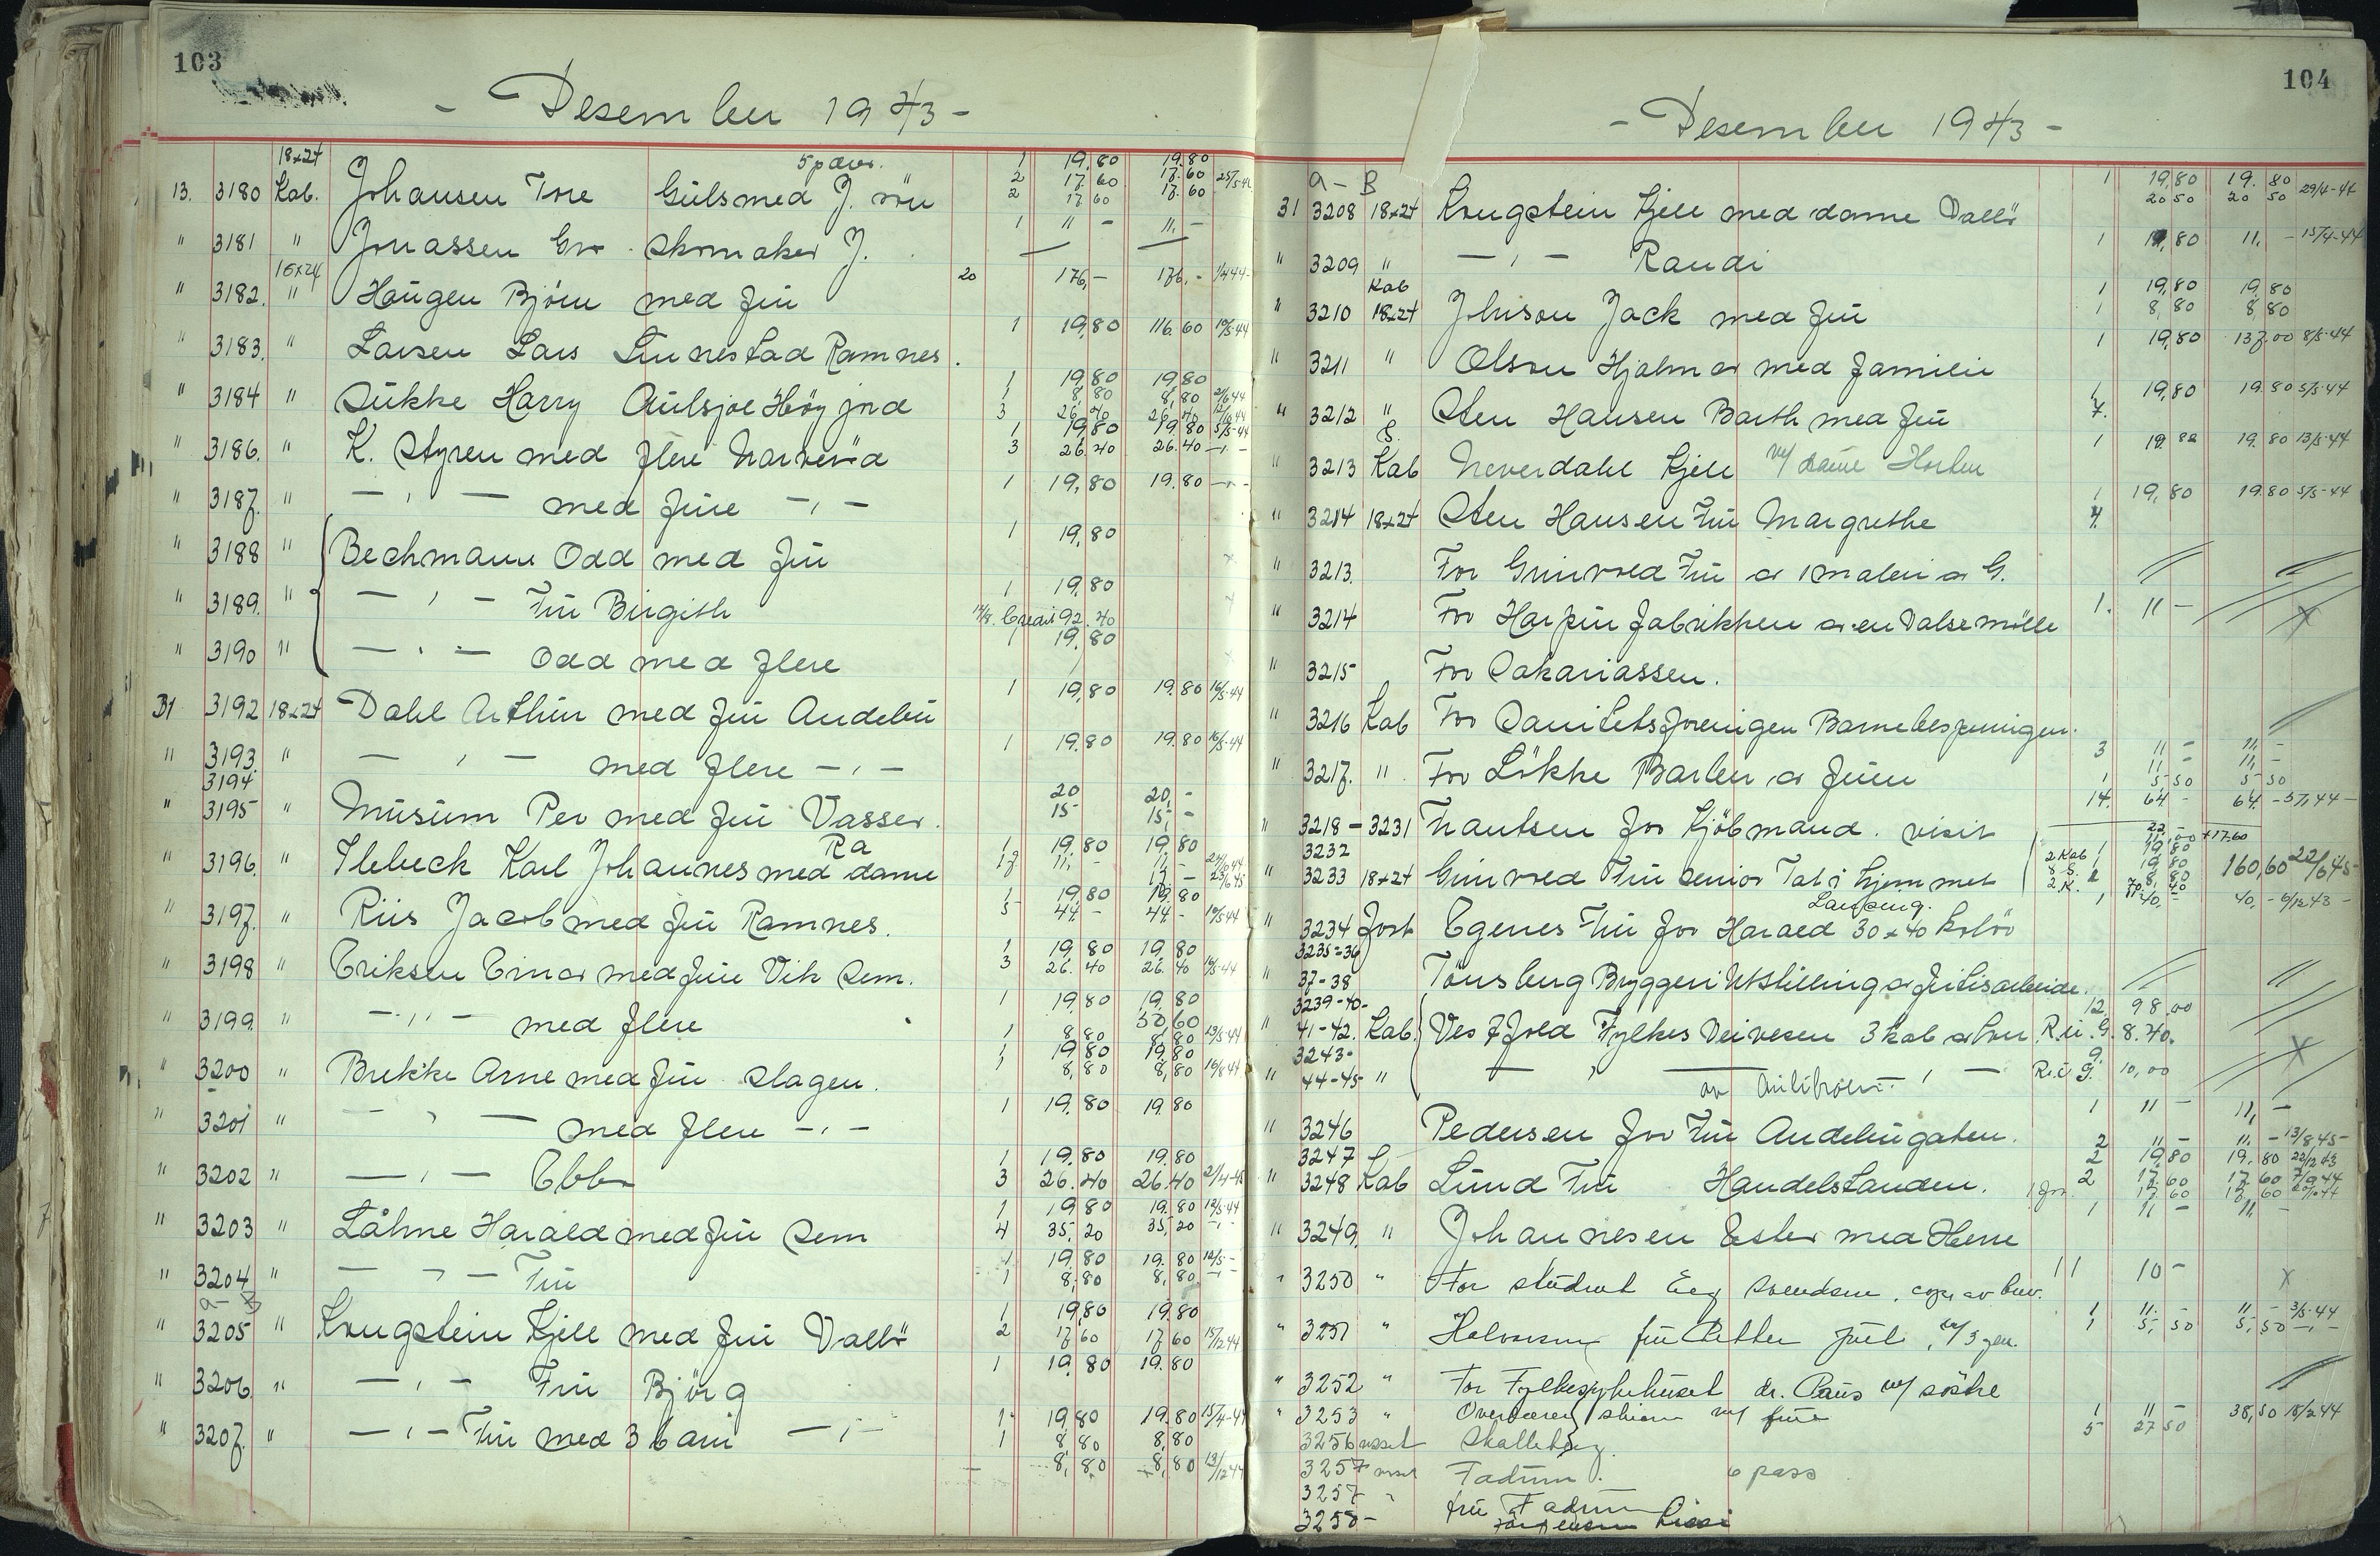 103
- Desember 1943 -
18x24 5 pdur. 1 19,80 19.80
13. 3180 Kab. Johansen Tore Gulsmed J. sön 2 17.60 17.60 25/5-44
2 17 60 17.60
1 11 - 11, -
" 3181 " Jonassen Gro. Skomaker J.
18x24 20 176,- 176,- 1/4 44-
" 3182. " Haugen Björn med fru
1 19,80 116.60 10/5-44
" 3183. " Larsen Lars Linnestad Ramnes.
1 19.80 19.80
" 3184 " Sukke Harry Aulsjoe Höyjord 1 8,80 8,80 21/6 44
3 26,40 26,40 12/10 44
1 19,80 19.80 5/5-44
" 3186. " K. Styren med flere Narveröd 3 26.40 26.40 -"-
1 19,80 19.80 -"-
" 3187. " - " - med frue - " -
1 19,80
" 3188 " Bechmann Odd med fru
1 19,80
" 3189. " - " - Fru Birgith
14/8. Credit 92.40
1 19.80
" 3190 " - " - Odd med flere
1 19,80 19.80 16/5-44
31 3192 18x24 Dahl Arthur med fru Andebu
1 19.80 19.80 16/5-44
" 3193 " - " - med flere - " -
3194 20 20, -
" 3195 " Musum Per med fru Vasser. 15 15, -
Ra 1 19,80 19.80
" 3196. " Ilebeck Karl Johannes med dame 11, - 11, -
1 19,80 19.80
" 3197. " Riis Jacob med fru Ramnes. 5 44, - 44, - 10/5-44
1 19,80 19.80
" 3198 " Eriksen Einar med frue Vik Sem. 3 26.40 26.40 10/5-44
1 19,80 19,80
" 3199. " - " - med flere 50 60
1 8.80 8,80 13/5-44
1 19,80 19.80
" 3200 " Brekke Arne med fru Slagen. 1 8,80 8,80 19/8 44
1 19,80 19.80
" 3201 " - " - med flere - " -
1 19.80 19.80
" 3202 " - " - Ebba 3 26.40 26.40 2/4-45
1 19 80 19.80 12/5-44
" 3203 " Låhne Harald med fru Sem 4 35,20 35,20 - " -
1 19.80 19.80 12/5 -
" 3204 " - " - Fru 1 8,80 8,80 - " -
a - B
1 19,80 19.80
" 3205 " Krugstein Kjell med fru Vallö 2 17.60 17 60 15/12 44
1 19.80 19.80
" 3206 " - " - Fru Björg
1 19,80 19.80 15/4-44
" 3207. " - " - Fru med 3 barn - " - 1 8,80 8,80
8,80 8,80 13/12 44
104
- Desember 1943 -
a - B 1 19,80 19.80 29/4-44
31 3208 18x24 Krugstein Kjell med dame Vallö 20 50 20 50
1 11,80 11, - 15/4-44
" 3209 " - " - Randi
Kab 1 19,80 19,80
" 3210 18x24 Jhnson Jack med fru 1 8,80 8,80
1 19,80 137.00 8/5-44
" 3211 " Olson Hjalmar med familie
1 19,80 19.80 5/5-44
" 3212 " Sten Hansen Barth med fru 7.
S. 1 19.80 19.80 13/5-44
" 3213 Kab Neverdahl Kjell m/ dame Horten
1 19,80 19.80 5/5-44
" 3214 18x24 Sten Hansen Fru Margrethe 7.
" 3213. For Grinvold Fru av 1 maleri av G.
" 3214 For Harpun fabrikken av en Valsemölle 1. 11 -
" 3215 For Sakariassen.
" 3216 Kab For Sanitetsforenigen Barnebespisnigen.
3 11 - 11, -
" 3217. " For Lökke Barber av fruen 11 - 11, -
1 5 50 5 50
14. 64 - 64, - 5/1 44 -
" 3218 - 3231 Nantsen for Kjöbmand. visit
3232 22,00 +17.60
2 Kab 1 19 80
" 3233 18x24 Grinvold Fru senior Tatt i hjemmet 160,60 22/6 45-
Landseng. 1 40, - 40, - 9/12 43 -
" 3234 Forst Egenes Fru for Harald 30x40 kolör
3235=36
" 37-38 Tönsberg Bryggeri Utstilling av juletsarbeide.
3239-40- 12 98.00
" 41-42. Kab. Vestfold Fylkes Veivesen 3 kab av bru R.u.G. 8.40.
3243- 9.
" 44-45- " - " - av - " - 10,00
1 11 - 11, -
" 3246 Pedersen for Fru Andebugaten.
3247 2 11 - 11, - 13/8 45-
2 19 80 19,80 22/2 45
" 3248 Kab Lund Fru Handelstanden. 2 17.60 17.60 7/9 44
1 for. 17.60 17,60
1 11 - 11, -
" 3249, " Johannesen Ester med Herre
" 3250 " For student Eeg Svendsen. copi av brev. 11 10 - x
1 11. - 11 - 3/5-44
" 3251 " Halvorsen fru Petter Juel. m/ 3 gen. 1 5, 50 5, 50 - " -
" 3252 " For Fylkesykehuset dr. Paus m/ söstre
" 3253 " Overlærer Skien m/ frue 1 11 - 38,50 18/2 44
3256 visit Skalleberg. 5 27 50
3257 visit Fadum. 6 pass
3257 " fru Fadum
3258 - Lissi